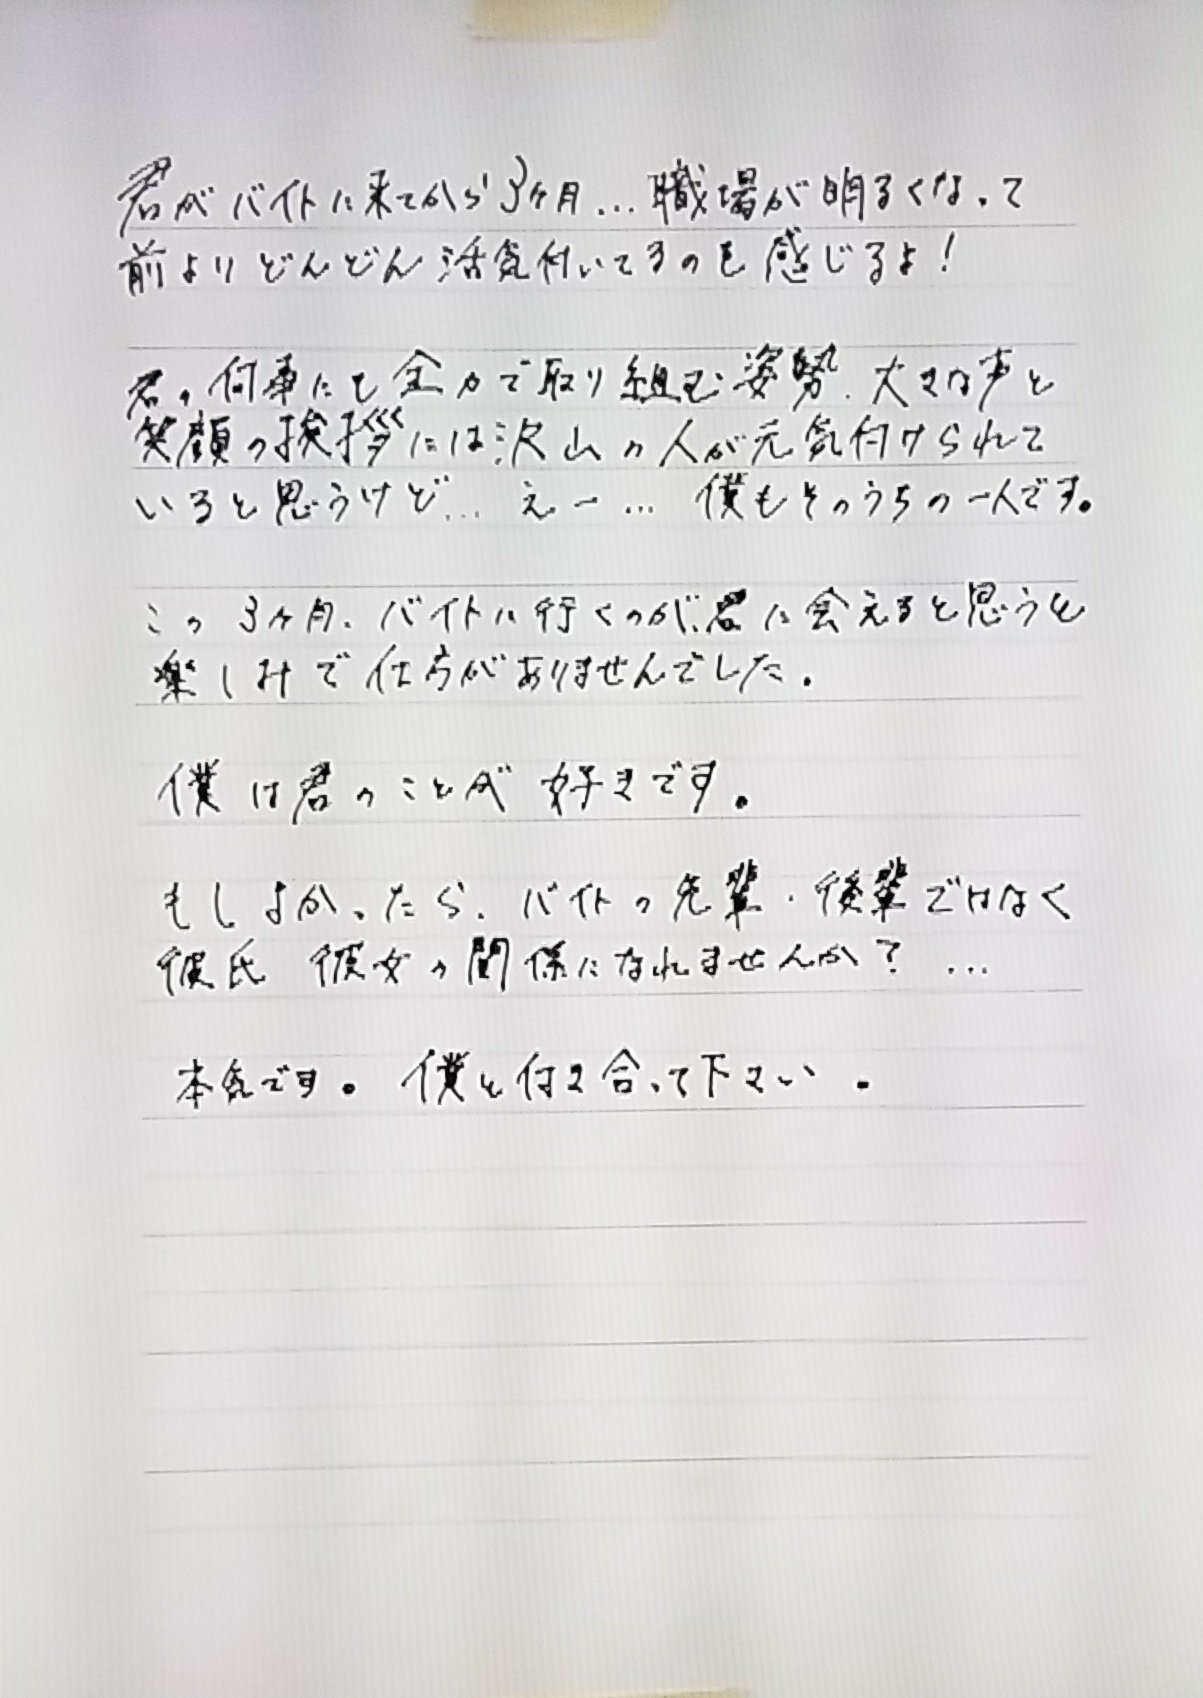 君がバイトに来てから3ヶ月…職場が明るくなって
前よりどんどん活気付いてるのを感じるよ!
君の何事にも全力で取り組む姿勢、大きな声と
笑顔の挨拶には沢山の人が元気付けられて
いると思うけど… えー… 僕もそのうちの一人です。
この3ヶ月、バイトに行くのが、君に会えると思うと
楽しみで仕方がありませんでした。
僕は君のことが好きです。
もしよかったら、バイトの先輩・後輩ではなく
彼氏 彼女の関係になれませんか? …
本気です。僕と付き合って下さい。